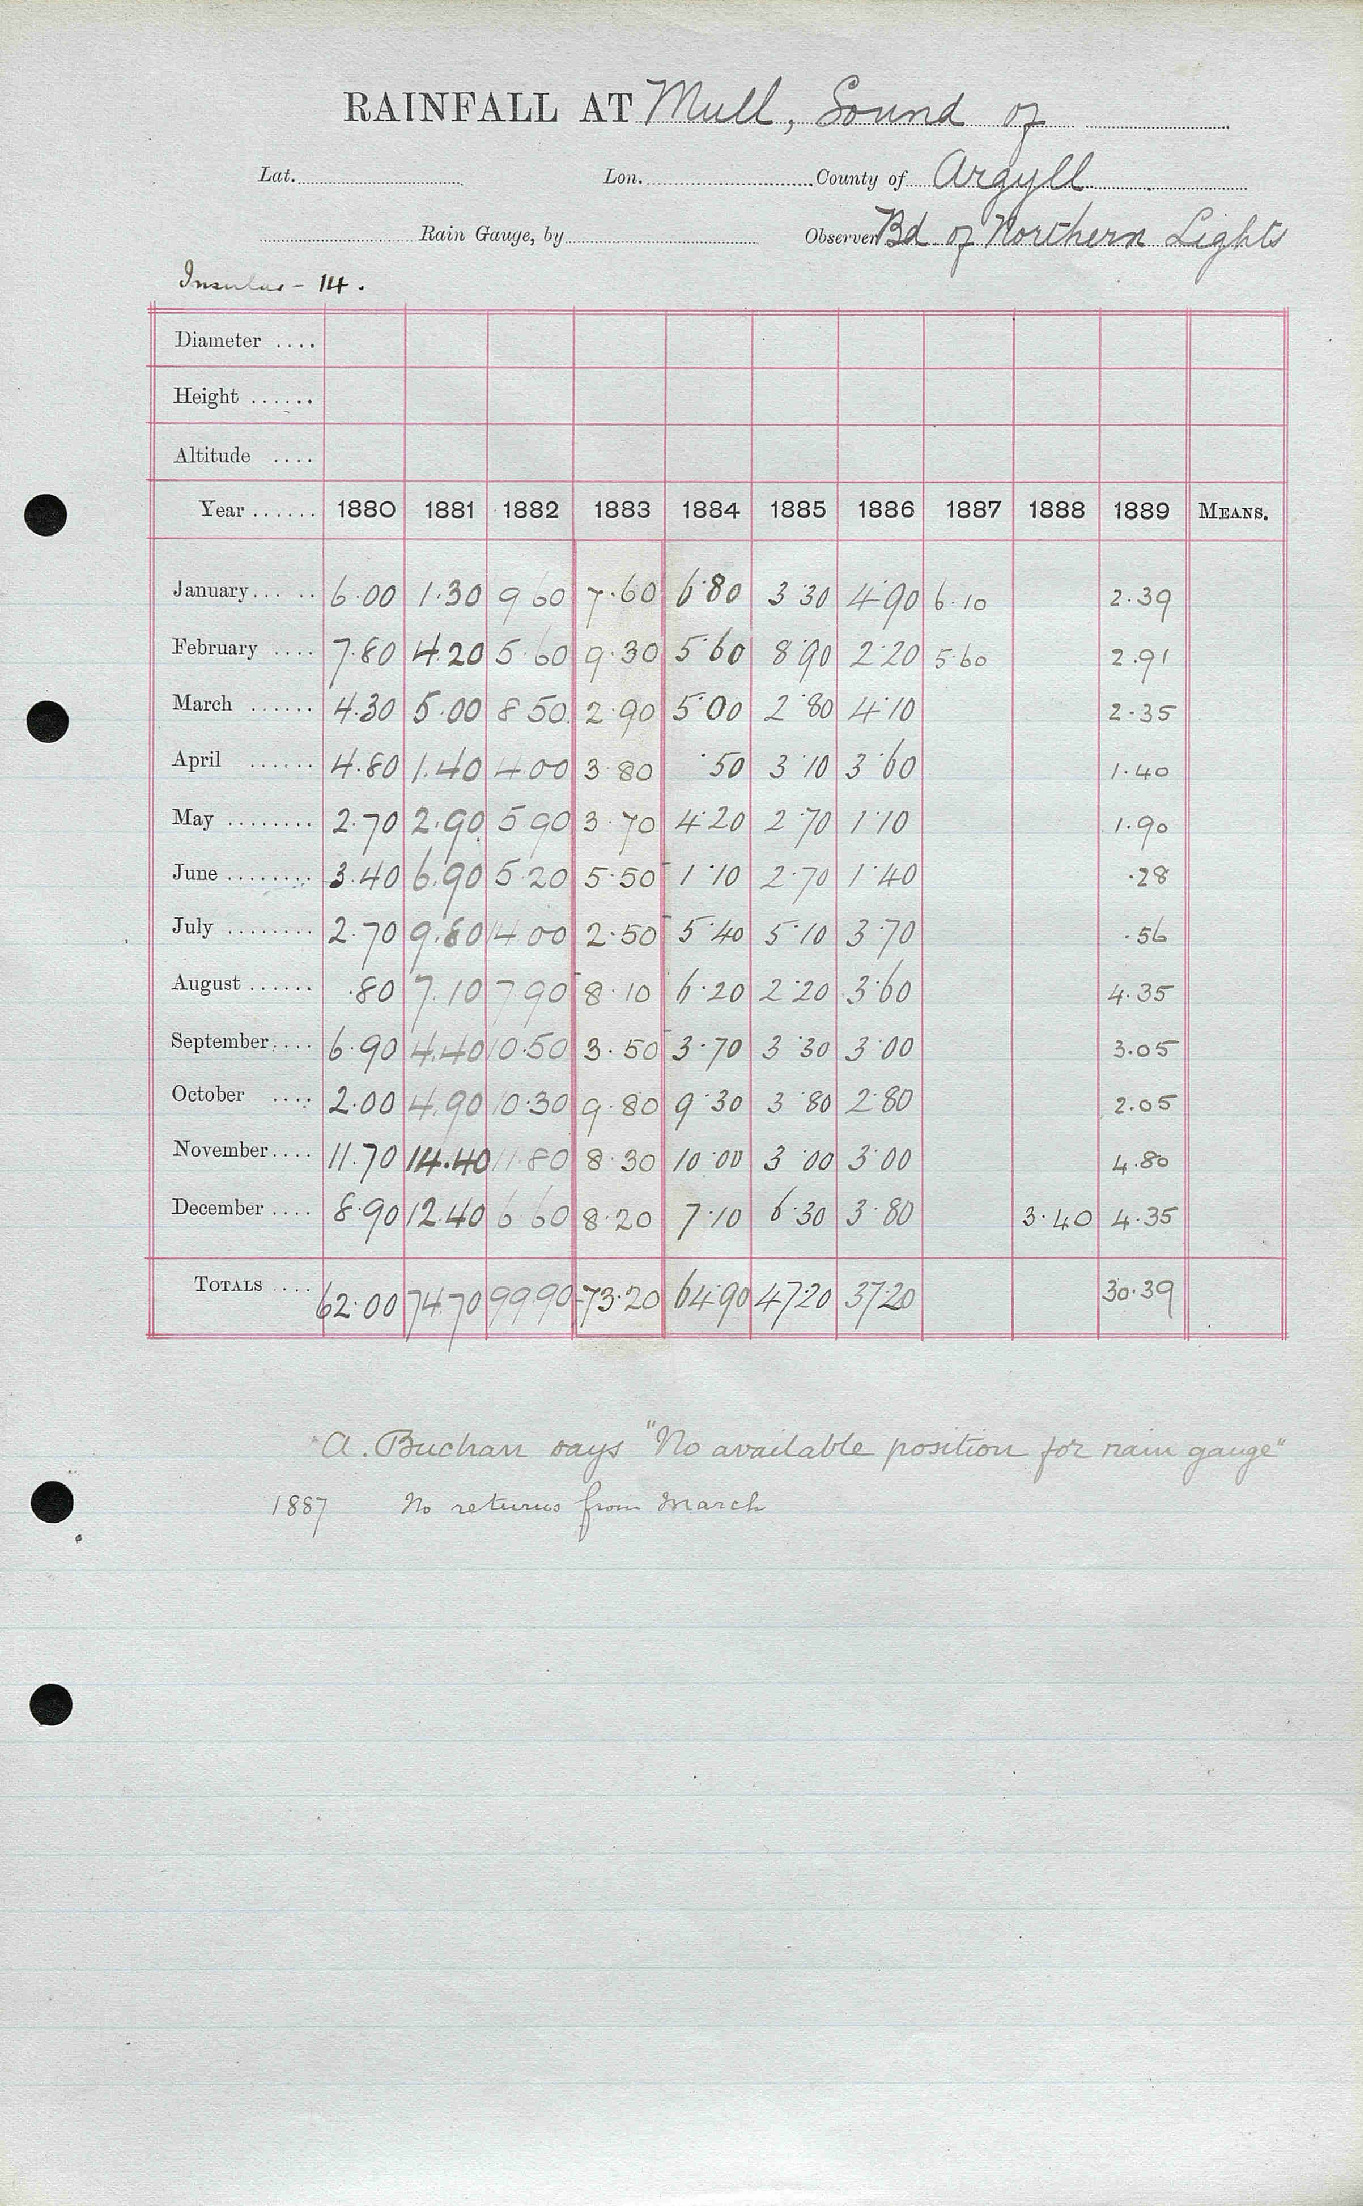 RAINFALL AT Mull, Sound of
Lat. Lon. County of Argyll
Rain Gauge, by Observer Bd of Northern Lights
Insular - 14.
Diameter ....
Height ......
Altitude ....
Year ...... 1880 1881 1882 1883 1884 1885 1886 1887 1888 1889 MEANS.
January.... .. 6.00 1.30 9 60 7.60 6.80 3.30 4.90 6.10 2.39
February .... 7.80 4.20 5 60 9.30 5.60 8.90 2.20 5.60 2.91
March ...... 4.30 5.00 8 50 2.90 5.00 2.80 4.10 2.35
April ...... 4.80 1.40 4 00 3 80 .50 3.10 3.60 1.40
May ........ 2.70 2.90 5 90 3.70 4.20 2.70 1.10 1.90
June ........ 3.40 6.90 5 20 5.50 1.10 2.70 1.40 .28
July ........ 2.70 9.80 14 00 2.50 5.40 5.10 3.70 .56
August ...... .80 7.10 7 90 8.10 6.20 2.20 3.60 4.35
September.... 6.90 4.40 10.50 3.50 3.70 3.30 3.00 3.05
October .... 2.00 4.90 10.30 9.80 9.30 3.80 2.80 2.05
November.... 11.70 14.40 11.80 8.30 10.00 3.00 3.00 4.80
December .... 8.90 12.40 6 60 8.20 7.10 6.30 3.80 3.40 4.35
TOTALS .... 62.00 74.70 99.90 73.20 64.90 47.20 37.20 30.39
A. Buchan says "No available position for rain gauge"
1887 No returns from March